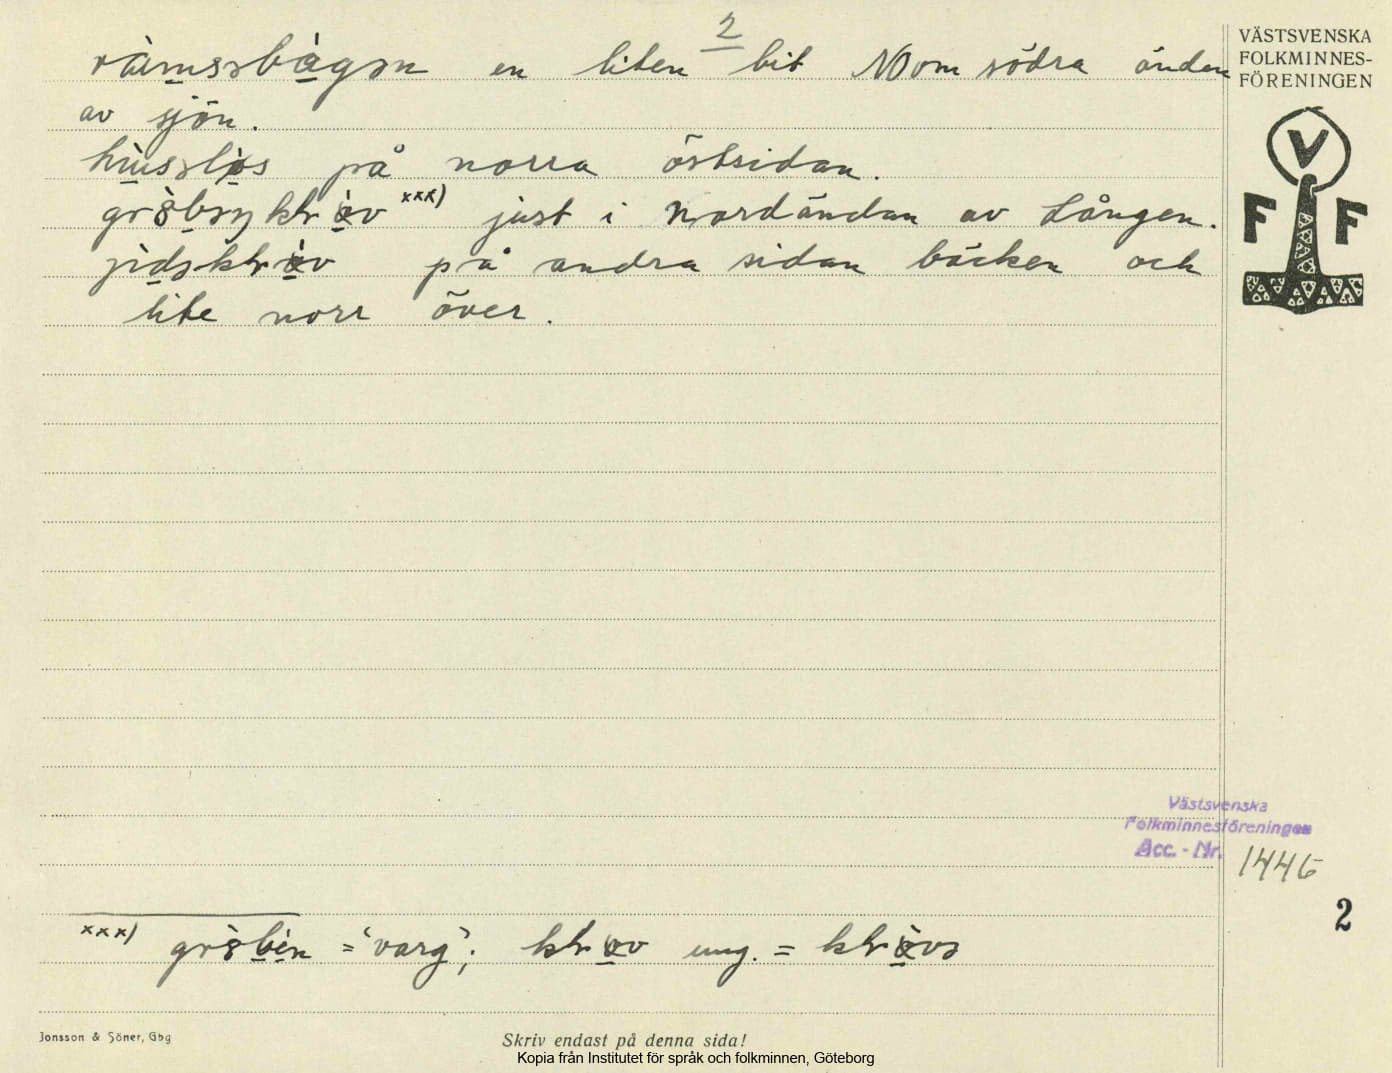 2
en liten bit NO om södra änden
av sjön.
på norra östsidan.
xxx) just i nordändan av Lången.
på andra sidan bäcken och
lite norr över.
VÄSTSVENSKA
FOLKMINNES-
FÖRENINGEN
V
F F
Västsvenska
Folkminnesföreningen
Acc. - Nr. 1446
2
xxx) = 'varg'; ung. =
Jonsson & Söner, Gbg
Skriv endast på denna sida!
Kopia från Institutet för språk och folkminnen, Göteborg